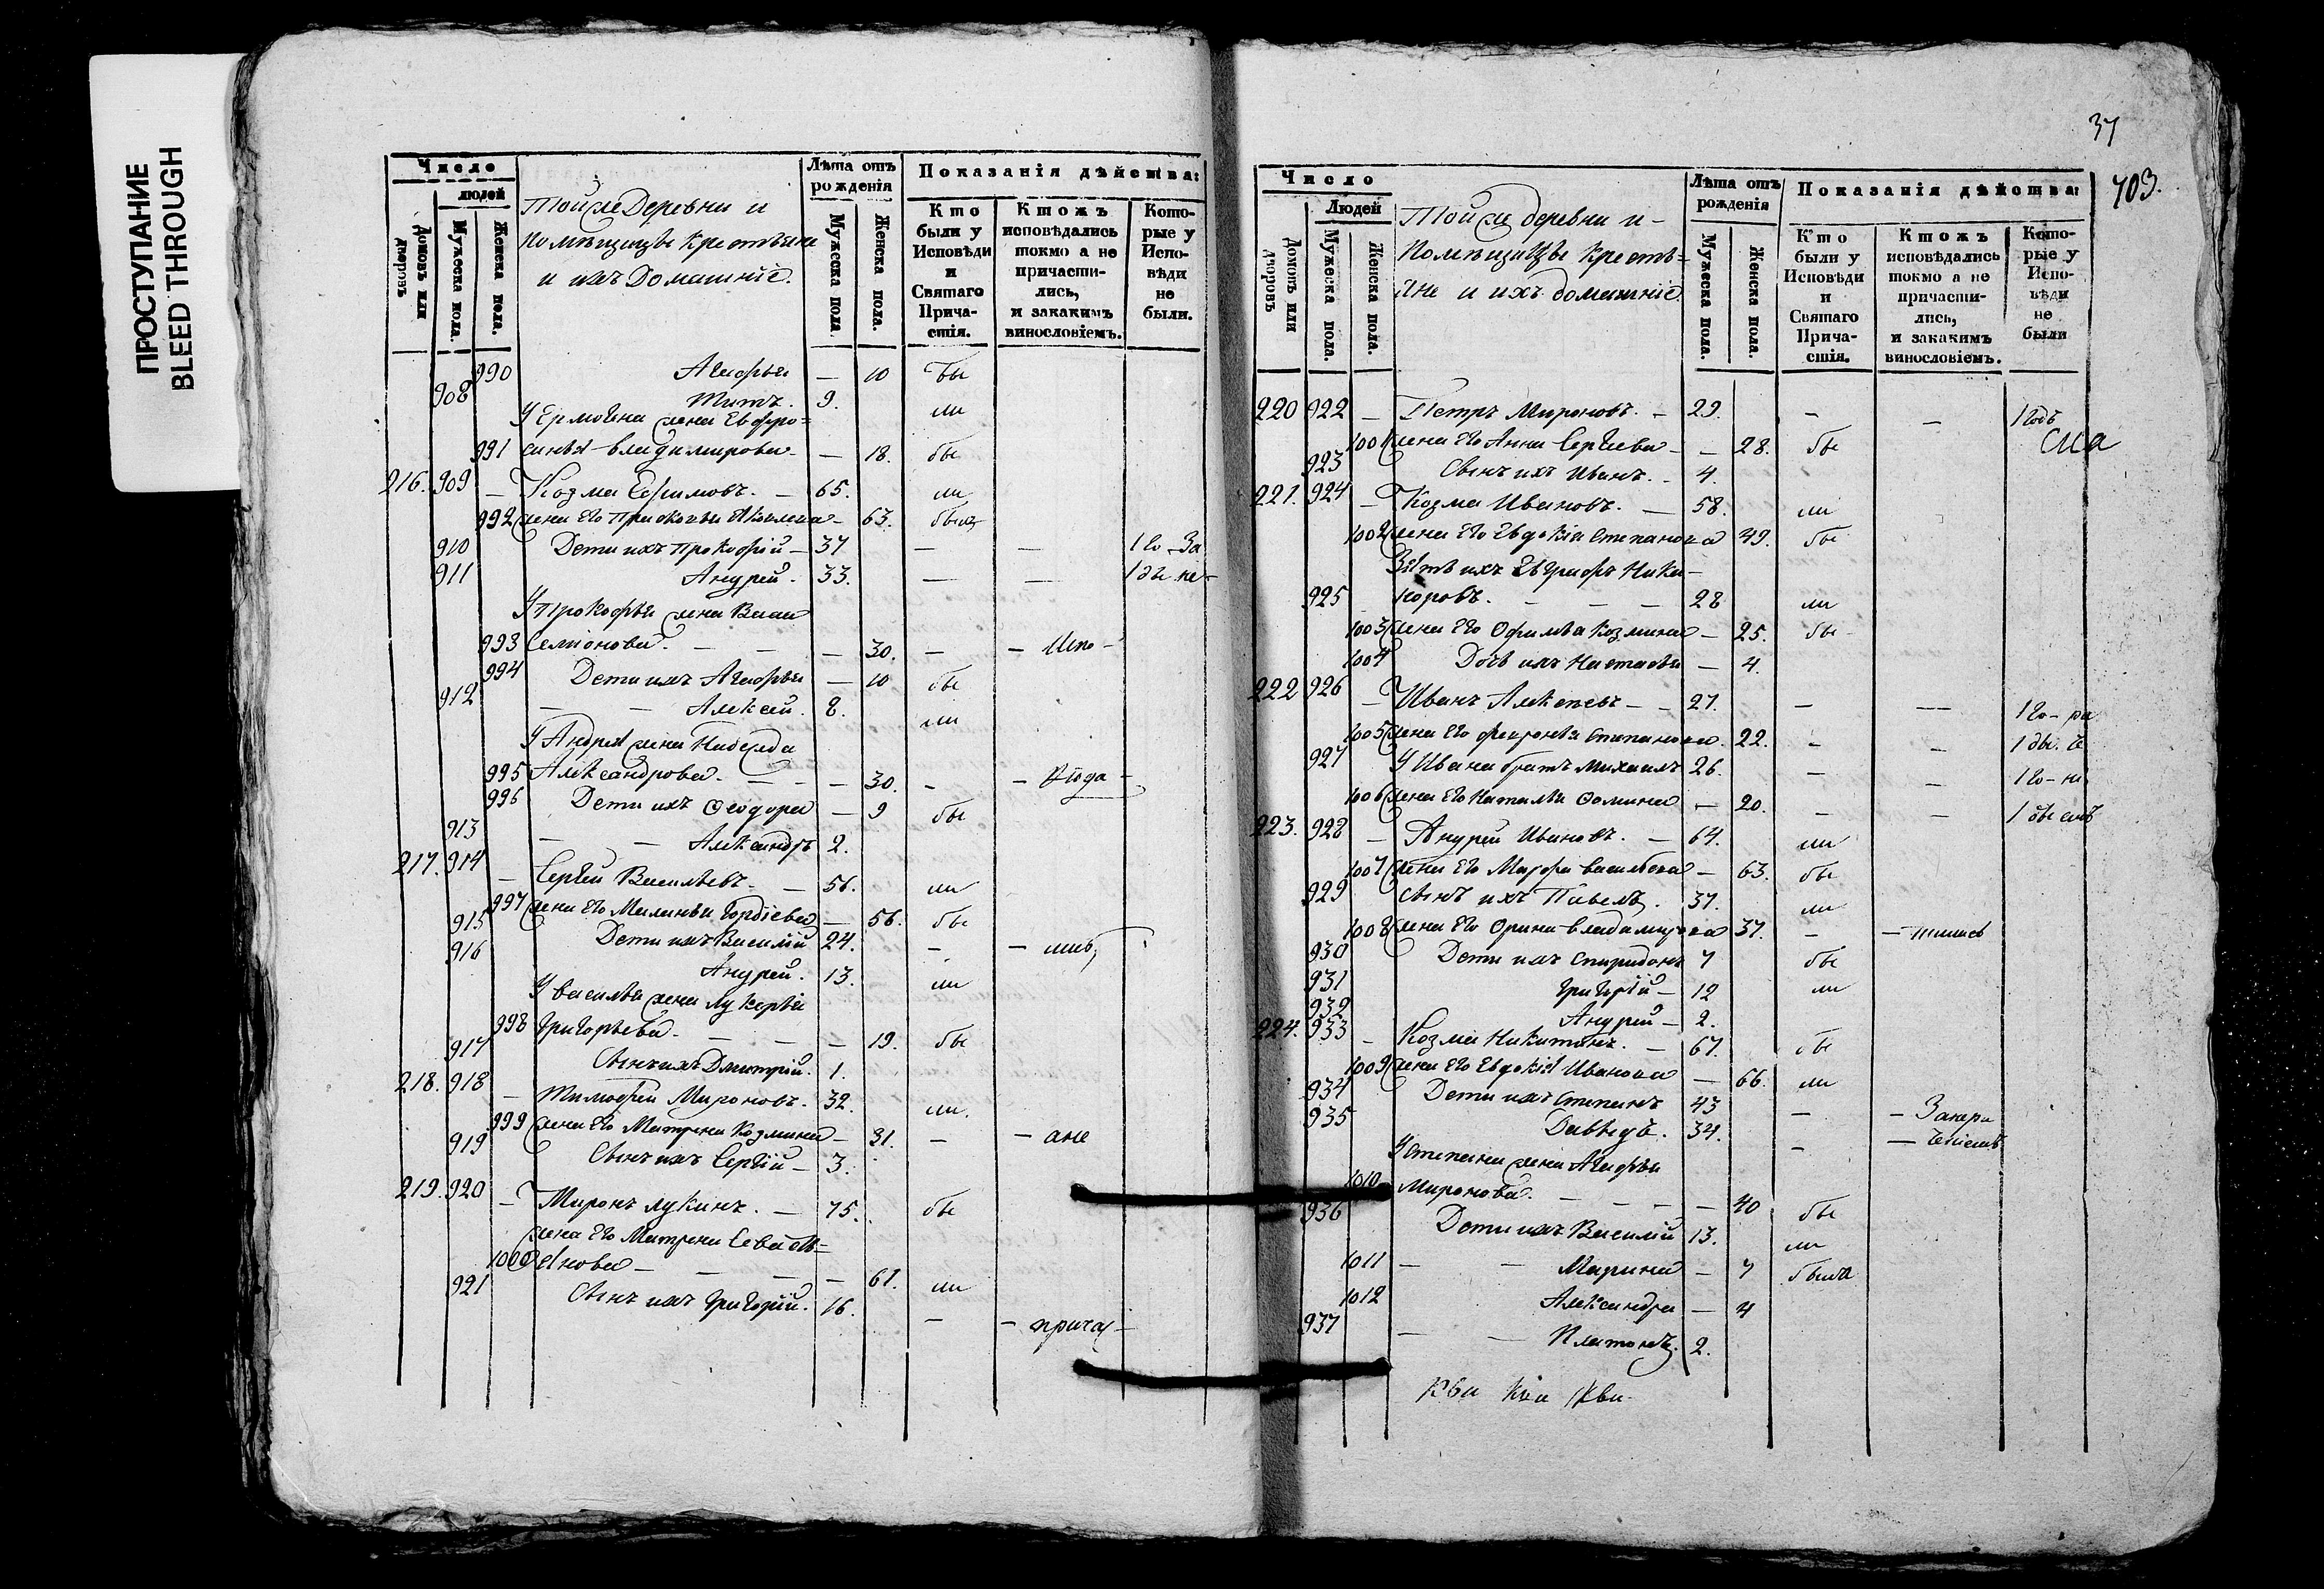 ПРОСТУПАНИЕ
BLEED THROUGH
Число
людей
Домовъ или дворовъ
Мужеска пола.
Женска пола.
Тойже Деревни и
помѣщицы крестьяне
и ихъ Домашніе.
Лѣта отъ рожденія
Мужеска пола
Женска пола.
Показанія дѣйства:
Кто были у Исповѣди и Святаго Прича-стія.
Ктожъ исповѣдались токмо а не причасти-лись, и закакимъ винословіемъ.
Кото-рые у Испо-вѣди не были.
990 Агафья — 10 бы
908 Титъ. 9. ли
У Ермолая жена Евфро=
991 синья владимирова — 18. бы
216. 909 — Козма Ефимовъ. — 65. ли
992 жена Его Прасковья — 63.
910 Дети ихъ Прокофій — 37 — — 1 го За
911 Андрей. 33. — —
У Прокофья жена Васса
993 Семіонова. — — — 30. — — Испо —
994 Дети ихъ Агафья — 10 бы
912 — — Алексей. 8. ли
У Андрея жена Надежда
995 Александрова. — — — 30. —
996 Дети ихъ Феодора — 9 бы
913 — — Александръ 2.
217. 914 — Сергей Васильевъ. — 56. ли
997 жена Его Маланья Гордіева — 56. бы
915 Дети ихъ Василій 24. —
916 Андрей. 13. ли
У василья жена лукерья
998 Григорьева. — — — 19. бы
917 Сынъ ихъ Дмитрій. 1.
218. 918 — Тимофей Мироновъ. 32. ли.
999 жена Его Матрена Козмина — 31. — — ане
919 Сынъ ихъ Сергій — 3.
219. 920 — Миронъ лукинъ. — 75. бы
жена Его Матрена Севасть=
1000 янова — — — — 61. ли
921 Сынъ ихъ Григорій. 16. — — прича —
37
703.
Число
Людей
Домовъ или дворовъ
Мужеска пола.
Женска пола.
Тойже деревни и —
Помѣщицы Кресть=
яне и ихъ домашніе
Лѣта отъ рожденія
Мужеска пола.
Женска пола.
Показанія дѣйства:
Кто были у Исповѣди и Святаго Прича-стія.
Ктожъ исповѣдались токмо а не причасти-лись, и закакимъ винословіемъ.
Кото-рые у Испо-вѣди не были
220 922 — Петръ Мироновъ. — 29. — —
1001 жена Его Анна Сергіева — — 28. бы
923 Сынъ ихъ Иванъ. — 4.
221. 924 — Козма Ивановъ. — 58. ли
1002 жена Его Евдокія Степанова 49. бы
Зять ихъ Евграфъ Ника—
925 норовъ. — — — 28 ли
1003 жена Его Офимья Козмина — 25. бы
1004 Дочь ихъ Настасья — 4.
222 926 — Иванъ Алексѣевъ — — 27. — — 1 го — ра
1005 жена Его февронья Степанова. 22. — —
927 У Ивана братъ михаилъ 26. — — 1 го — на
1006 жена Его Наталья Фомина — 20. — —
223. 928 — Андрей Ивановъ. — 64. ли
1007 жена Его Марфа васильева — 63. бы
929 Сынъ ихъ Павелъ. 37. ли
1008 жена Его Орина владимирова 37. —
930 Дети ихъ Спиридонъ 7 бы
931 Григорій — 12 ли
932 Андрей — 2.
224. 933 — Козма Никитинъ. — 67. бы
1009 жена Его Евдокія Иванова — 66. ли
934 Дети ихъ Степанъ 43 —
935 Давыдъ. 34. —
У Степана жена Агафья
1010 Миронова. — — — — 40 бы
936 Дети ихъ Василій 13. ли
1011 — — Марина — 7 была
1012 Александра — 4
937 — — Платонъ. 2.